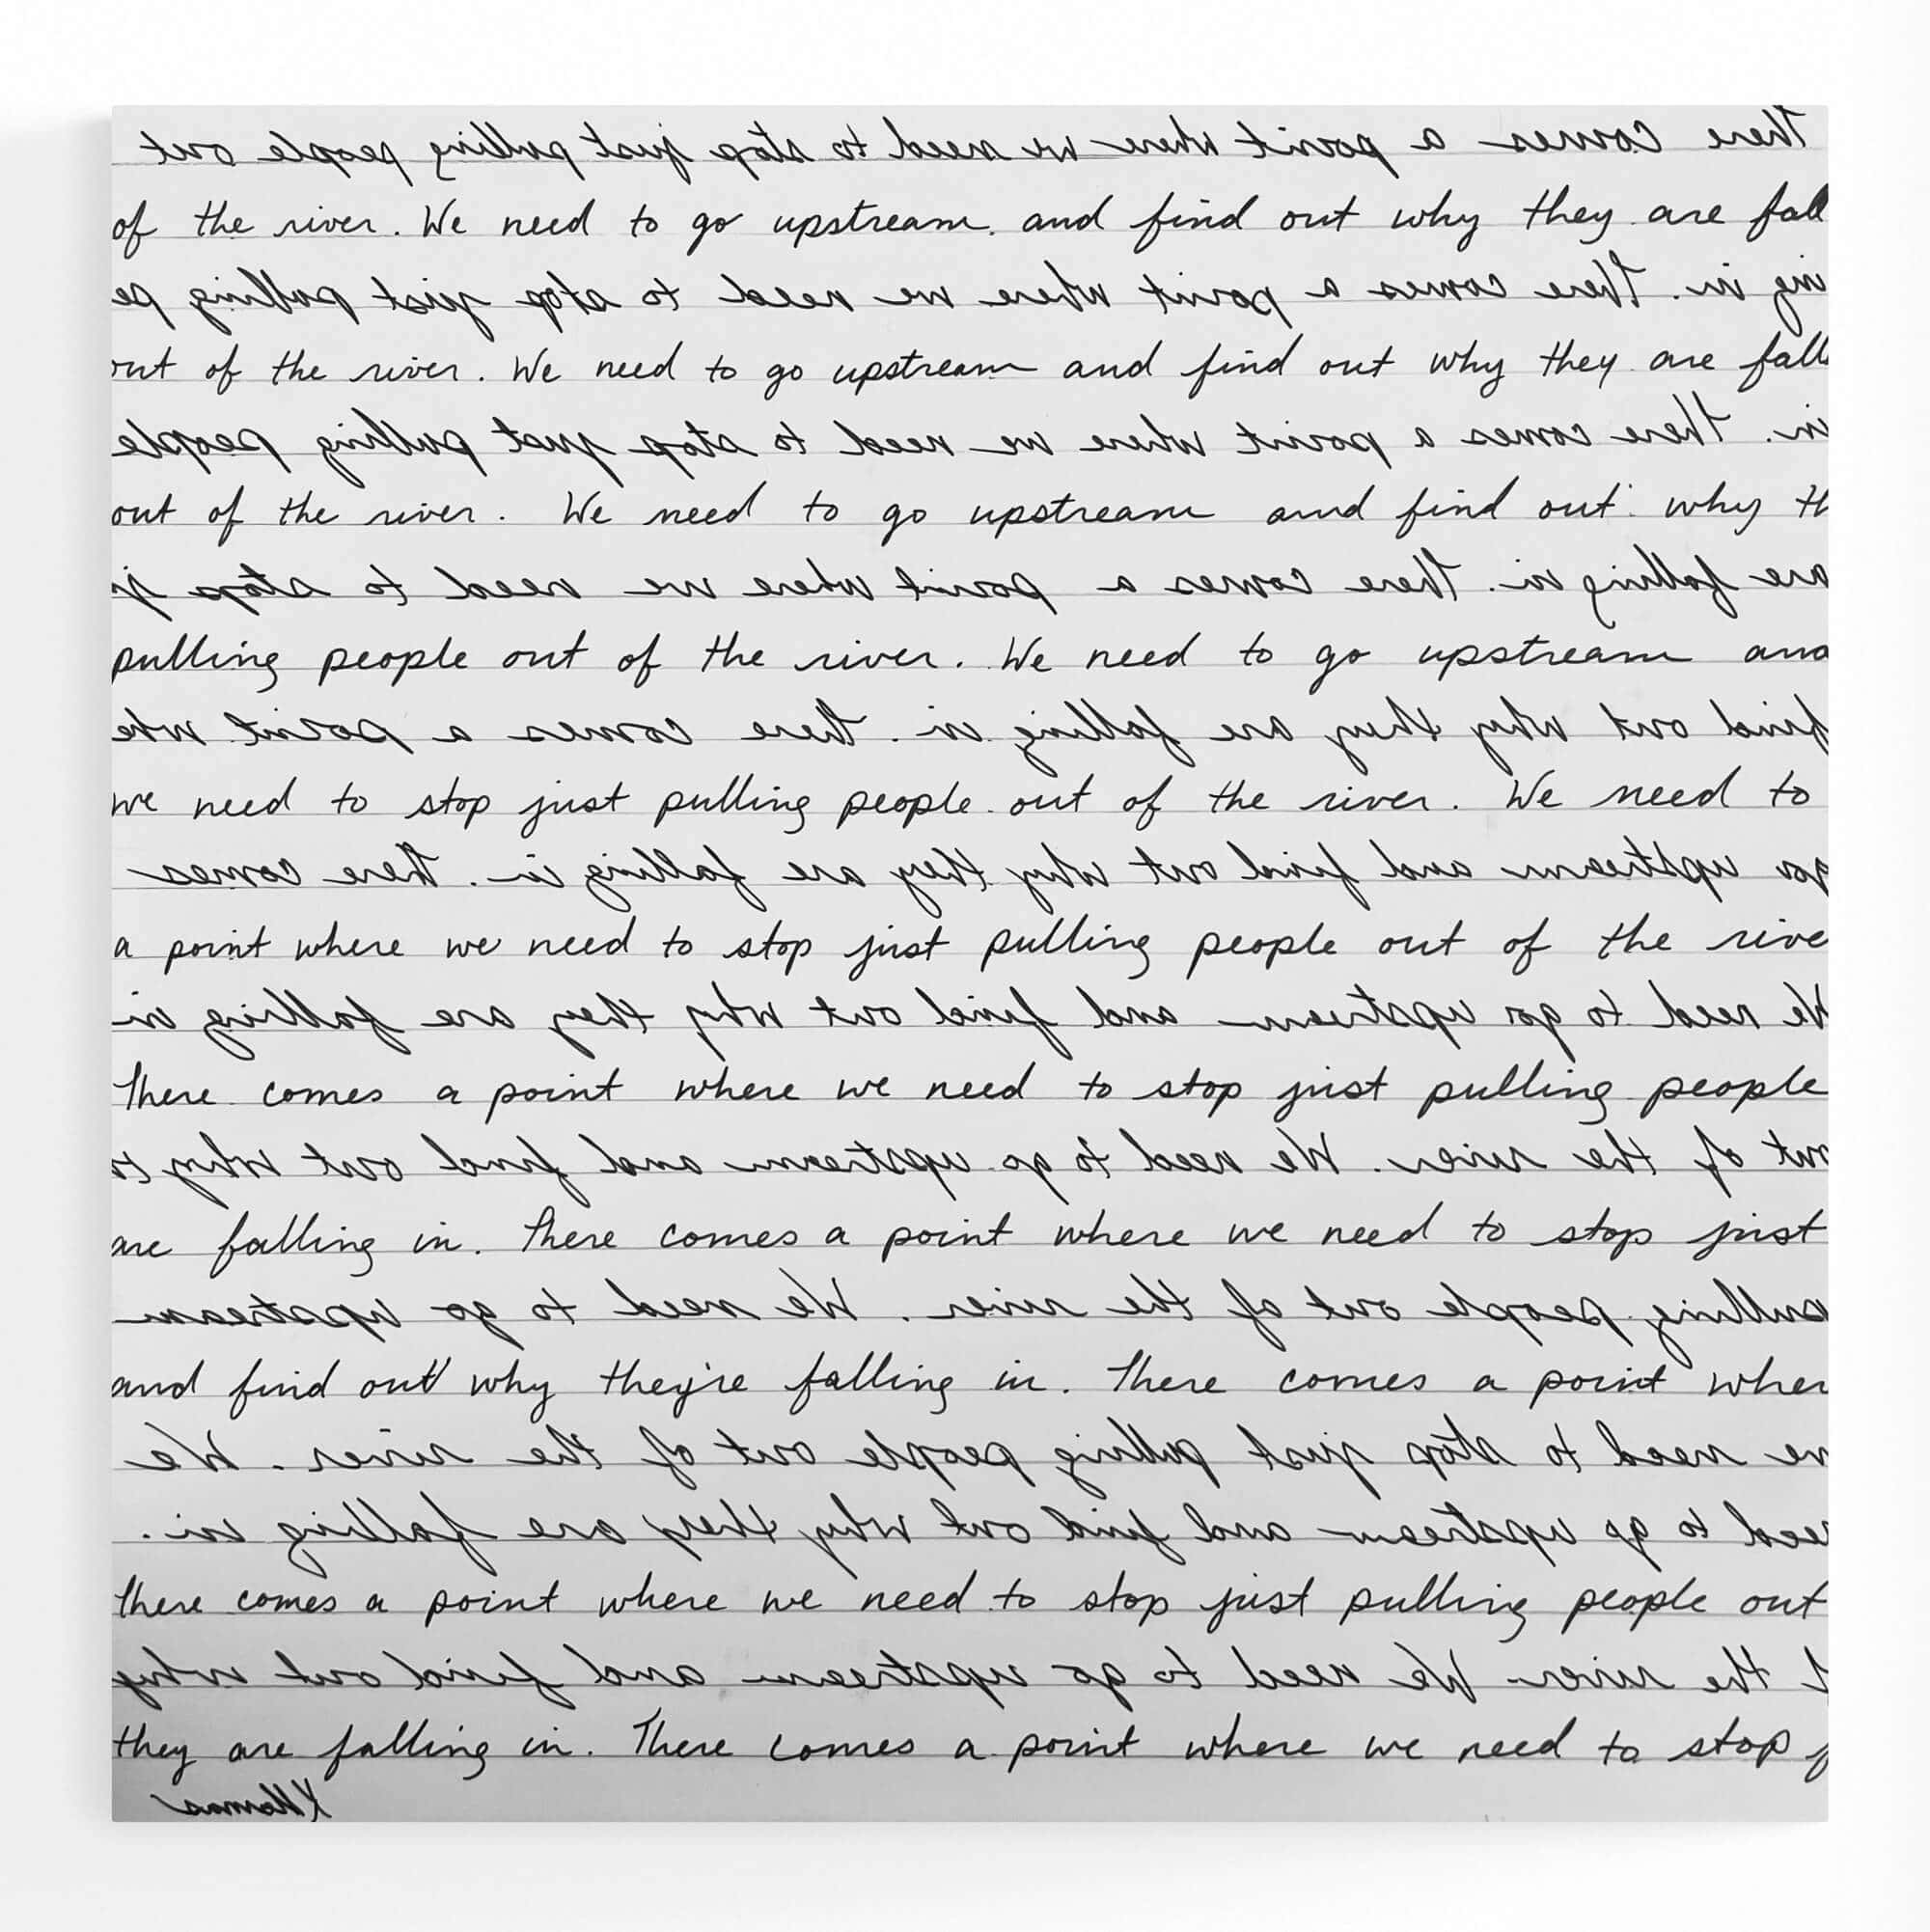 There comes a point where we need to stop just pulling people out
of the river. We need to go upstream and find out why they are fall
ing in. There comes a point where we need to stop just pulling pe
out of the river. We need to go upstream and find out why they are fall
in. There comes a point where we need to stop just pulling people
out of the river. We need to go upstream and find out why th
are falling in. There comes a point where we need to stop j
pulling people out of the river. We need to go upstream and
find out why they are falling in. There comes a point whe
we need to stop just pulling people out of the river. We need to
go upstream and find out why they are falling in. There comes
a point where we need to stop just pulling people out of the rive
We need to go upstream and find out why they are falling in
There comes a point where we need to stop just pulling people
out of the river. We need to go upstream and find out why
are falling in. There comes a point where we need to stop just
pulling people out of the river. We need to go upstream
and find out why they're falling in. There comes a point wher
we need to stop just pulling people out of the river. We
need to go upstream and find out why they are falling in.
There comes a point where we need to stop just pulling people out
f the river We need to go upstream and find out why
they are falling in. There comes a point where we need to stop j